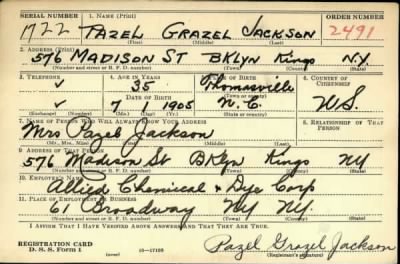 SERIAL NUMBER 1. NAME (Print) ORDER NUMBER
1722 PAZEL GRAZEL JACKSON 2491
(First) (Middle) (Last)
2. ADDRESS (Print)
576 MADISON ST BKLYN Kings N.Y.
(Number and street or R. F. D. number) (Town) (County) (State)
3. TELEPHONE 4. AGE IN YEARS 5. PLACE OF BIRTH 6. COUNTRY OF CITIZENSHIP
✓ 35 Thomasville U.S.
DATE OF BIRTH (Town or county)
✓ 7 1 1905 N.C.
(Exchange) (Number) (Mo.) (Day) (Yr.) (State or country)
7. NAME OF PERSON WHO WILL ALWAYS KNOW YOUR ADDRESS 8. RELATIONSHIP OF THAT PERSON
Mrs Pazel Jackson
9. ADDRESS OF THAT PERSON
576 Madison St BKlyn Kings NY
(Number and street or R. F. D. number) (Town) (County) (State)
10. EMPLOYER'S NAME
Allied Chemical & Dye Corp
11. PLACE OF EMPLOYMENT OR BUSINESS
61 Broadway NY NY.
(Number and street or R. F. D. number) (Town) (County) (State)
I AFFIRM THAT I HAVE VERIFIED ABOVE ANSWERS AND THAT THEY ARE TRUE.
REGISTRATION CARD
D. S. S. FORM 1 (over) 16—17105 Pazel Grazel Jackson
(Registrant's signature)